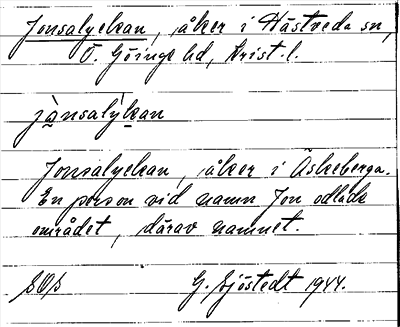 Jonsalyckan, åker i Hästveda sn,
Ö. Göinge hd, Krist. l.
jànsalỳkan
Jonsalyckan, åker i Äskeberga.
En person vid namn Jon odlade
området, därav namnet.
G. Sjöstedt 1944.